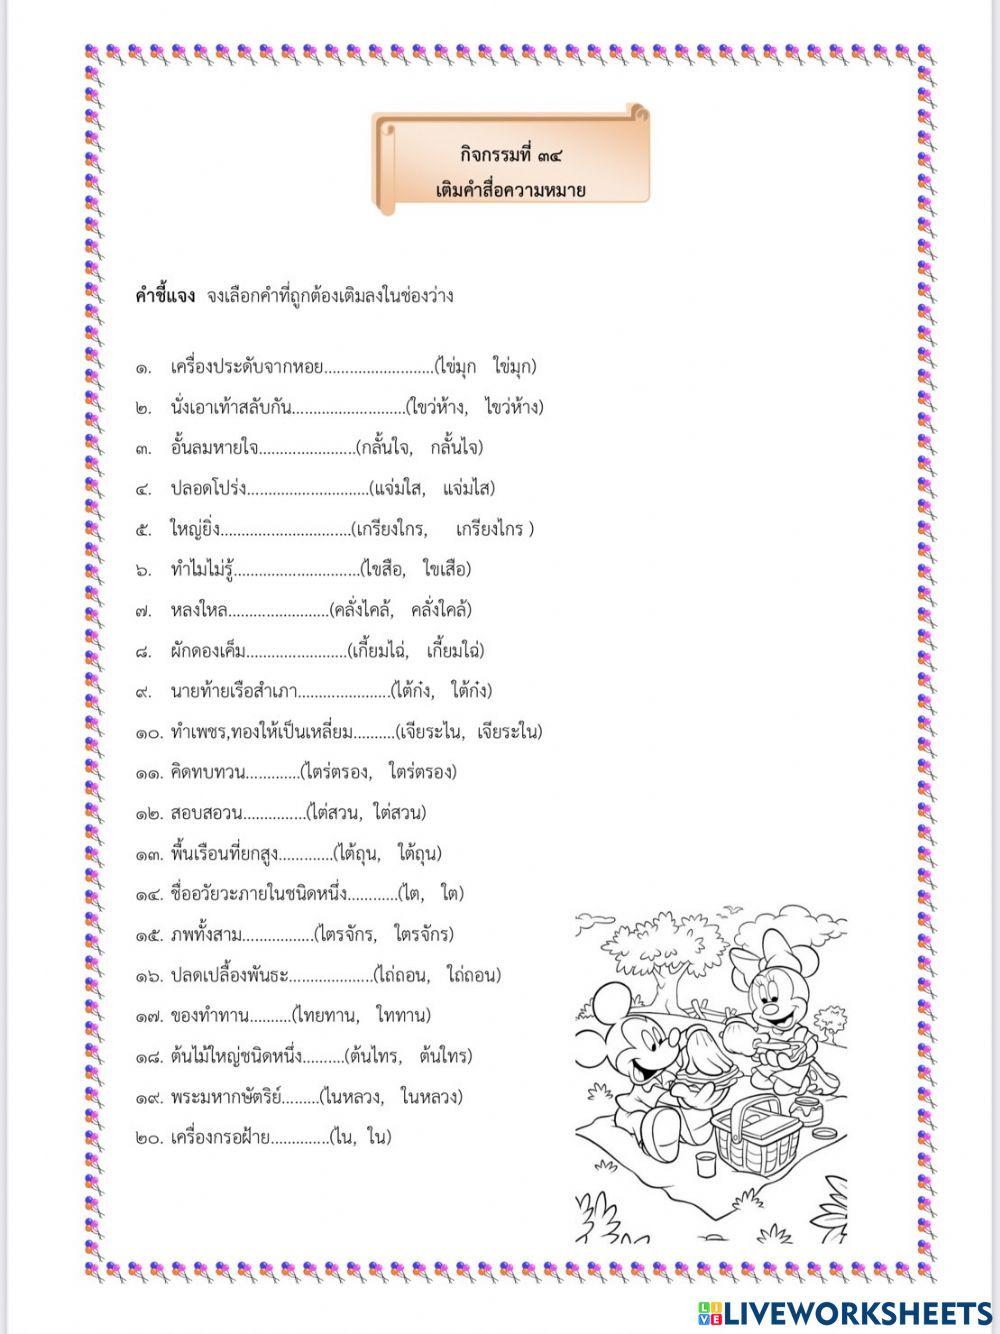 กิจกรรมที่ ๓๔
เติมคำสื่อความหมาย
คำชี้แจง จงเลือกคำที่ถูกต้องเติมลงในช่องว่าง
๑. เครื่องประดับจากหอย..........................(ไข่มุก ใข่มุก)
๒. นั่งเอาเท้าสลับกัน...........................(ใขว่ห้าง, ไขว่ห้าง)
๓. อั้นลมหายใจ.......................(กลั้นใจ, กลั้นไจ)
๔. ปลอดโปร่ง.............................(แจ่มใส, แจ่มไส)
๕. ใหญ่ยิ่ง...............................(เกรียงใกร, เกรียงไกร )
๖. ทำไมไม่รู้..............................(ไขสือ, ใขเสือ)
๗. หลงใหล........................(คลั่งไคล้, คลั่งใคล้)
๘. ผักดองเค็ม........................(เกี้ยมไฉ่, เกี้ยมใฉ่)
๙. นายท้ายเรือสำเภา......................(ไต้ก๋ง, ใต้ก๋ง)
๑๐. ทำเพชร,ทองให้เป็นเหลี่ยม..........(เจียระไน, เจียระใน)
๑๑. คิดทบทวน.............(ไตร่ตรอง, ใตร่ตรอง)
๑๒. สอบสอวน...............(ไต่สวน, ใต่สวน)
๑๓. พื้นเรือนที่ยกสูง.............(ไต้ถุน, ใต้ถุน)
๑๔. ชื่ออวัยวะภายในชนิดหนึ่ง............(ไต, ใต)
๑๕. ภพทั้งสาม.................(ไตรจักร, ใตรจักร)
๑๖. ปลดเปลื้องพันธะ....................(ไถ่ถอน, ใถ่ถอน)
๑๗. ของทำทาน..........(ไทยทาน, ใททาน)
๑๘. ต้นไม้ใหญ่ชนิดหนึ่ง..........(ต้นไทร, ต้นใทร)
๑๙. พระมหากษัตริย์.........(ไนหลวง, ในหลวง)
๒๐. เครื่องกรอฝ้าย..............(ไน, ใน)
LIVEWORKSHEETS